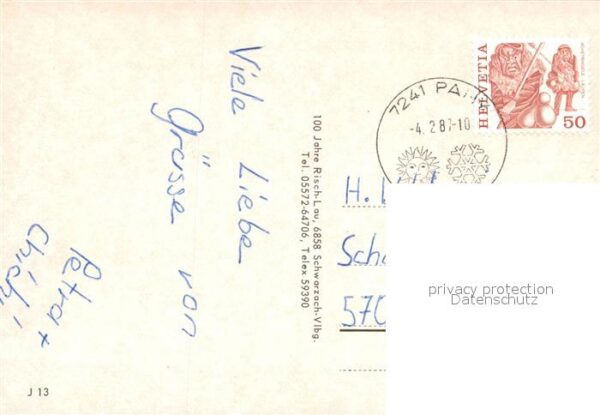 Viele Liebe
Grüsse von
Petra +
HELVETIA
50
7241 PA
-4.2.87-10
100 Jahre Risch-Lau, 6858 Schwarzach-Vlbg.
Tel. 05572-64706, Telex 59390
H.
Sch
570
privacy protection
Datenschutz
J 13